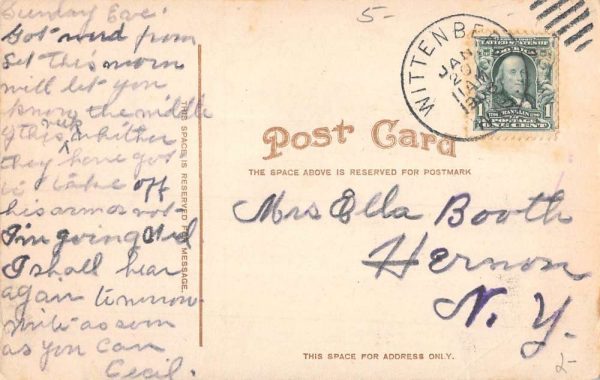 Sunday Eve.
Got word from
Set this morn
will let you
know the middle
of this week whither
they have got
to take off
his arm or not
I'm going Wed
I shall hear
again tomorrow
write as soon
as you can
Cecil.
THIS SPACE IS RESERVED FOR MESSAGE.
5-
WITTENBE
JAN
20
11 AM
UNITED STATES OF AMERICA
FRANKLIN
1 POSTAGE 1
ONE CENT
Post Card
THE SPACE ABOVE IS RESERVED FOR POSTMARK
Mrs Ella Booth
Hermon
N. Y.
THIS SPACE FOR ADDRESS ONLY.
2-